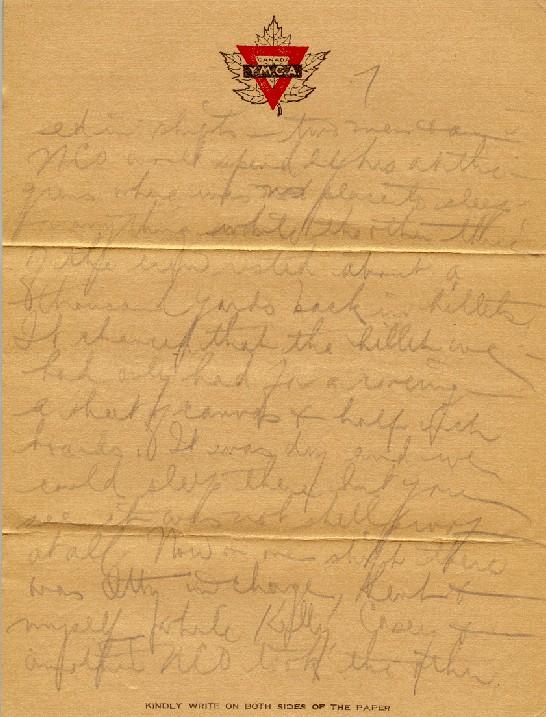 CANADA
Y.M.C.A.
7
ed in shifts – two men & an
NCO would spend 24 hrs at the
guns where was no place to sleep
or anything while the other three
of the crew rested about a
thousand yards back in billets.
It chanced that the billet we
had only had for a roofing
a sheet of canvas & half inch
boards. It was dry and we
could sleep there, but you
see it was not shell proof
at all. Now on one shift there
was Otty in charge, Kent &
myself while Kelly, Casey &
another NCO took the other.
KINDLY WRITE ON BOTH SIDES OF THE PAPER